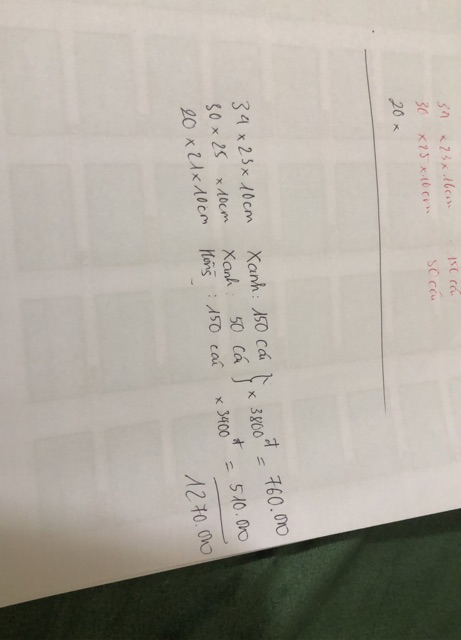 34 x 23 x 16cm 150 cái
30 x 25 x 10cm 50 cái
20 x
34 x 23 x 10cm Xanh: 150 cái } x 3800đ = 760.000
30 x 25 x 10cm Xanh: 50 cái
20 x 21 x 10cm Hồng: 150 cái x 3400đ = 510.000
1270.000